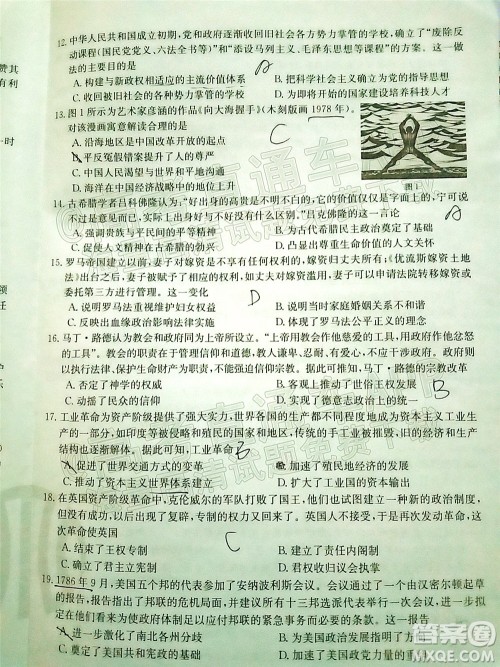 12. 中华人民共和国成立初期，党和政府逐渐收回旧社会各方势力掌管的学校，确立了“废除反
动课程（国民党党义、六法全书等）”和“添设马列主义、毛泽东思想等课程”的方针。这一做
法的主要目的是
A. 构建与新政权相适应的主流价值体系
B. 把科学社会主义确立为党的指导思想
C. 收回被旧社会各种势力掌管的学校
D. 为即将开始的国家建设培养科技人才
A
13. 图1所示为艺术家彦涵的作品《向大海握手》（木刻版画1978年）。
对该漫画寓意解读合理的是
A. 沿海地区是中国改革开放的起点
B. 平反冤假错案提升了人的尊严
C. 中国人民渴望与世界和平地沟通
D. 海洋在中国经济战略中的地位上升
C
图1
14. 古希腊学者吕科佛隆认为：“好出身的高贵是不明不白的，它的价值仅仅是字面上的，宁可说
不过是一种看法，按照真理，好出身和没有什么区别。”吕克佛隆的这一言论
A. 强调贵族与平民间的平等精神
B. 为古代希腊的民主政治发展奠基
C. 促使人文精神在古希腊的勃兴
D. 凸显希腊部分学者的人文关怀
A
15. 罗马帝国建立以前，妻子对嫁资所享有的权利很有限，1世纪末以后，随着《优流斯嫁资土地
法》出台之后，妻子被赋予了相应的权利，如丈夫对嫁资不利，妻子可以申请法院转移嫁资或
委托第三方进行管理。这一变化
A. 说明罗马法重视维护妇女权益
B. 说明当时家庭婚姻关系不和谐
C. 反映出血缘政治影响法律实施
D. 体现了罗马法公平正义的原则
D
16. 马丁·路德认为教会和政府共同为上帝所设立。“上帝用教会作他慈爱的工具，用政府作他忿怒
的工具。教会的职责在于管理信仰和道德，教人谦卑、忍耐和服从，而政府的职责在于维护
法律、社会治安。教会不能以属灵权柄妨碍政府职责，政府也不能以属世权柄干预宗教改革
A. 否定了神学的权威
B. 客观上推动了世俗王权发展
C. 借助了政府的权力
D. 实现了德意志政治上的统一
B
17. 工业革命为资产阶级提供了强大实力，世界各国的生产都不同程度地成为资本主义工业生
产的一部分，如印度等被侵略和殖民的国家和地区，传统的小农经济以及与之相适应的社会
结构也逐渐解体。据此可知，工业革命
A. 促进了世界交通方式的变革
B. 加速了殖民地经济的发展
C. 推动了资本主义世界体系的形成
D. 扩大了工业资本的输出
B
18. 在英国资产阶级革命中，克伦威尔的军队打败了国王，他们也试图建立一种新的政治制度，
但没有成功，最后出现了复辟，专制的权力又回来了。英国人不接受，于是再发动一次革命，这
次革命使英国
A. 结束了王权专制
B. 建立了责任内阁制
C. 确立了君主立宪政体
D. 君权收归议会执掌
C
19. 1786年9月，美国五个邦的代表参加了安纳波利斯会议。会议通过了一份由汉密尔顿起草
的报告，报告分析了邦联的危机局面，并建议所有十三邦选派代表参加一个大会，进一步拟定
他们认为能使政府体制足以适应处理邦联事务的紧急需要而必要的条款。这一报告
A. 进一步激化了南北各州分歧
B. 为美国政治发展创造了契机
C. 奠定了美国共和宪政的基础
D. 加速了美国民主政治的成熟